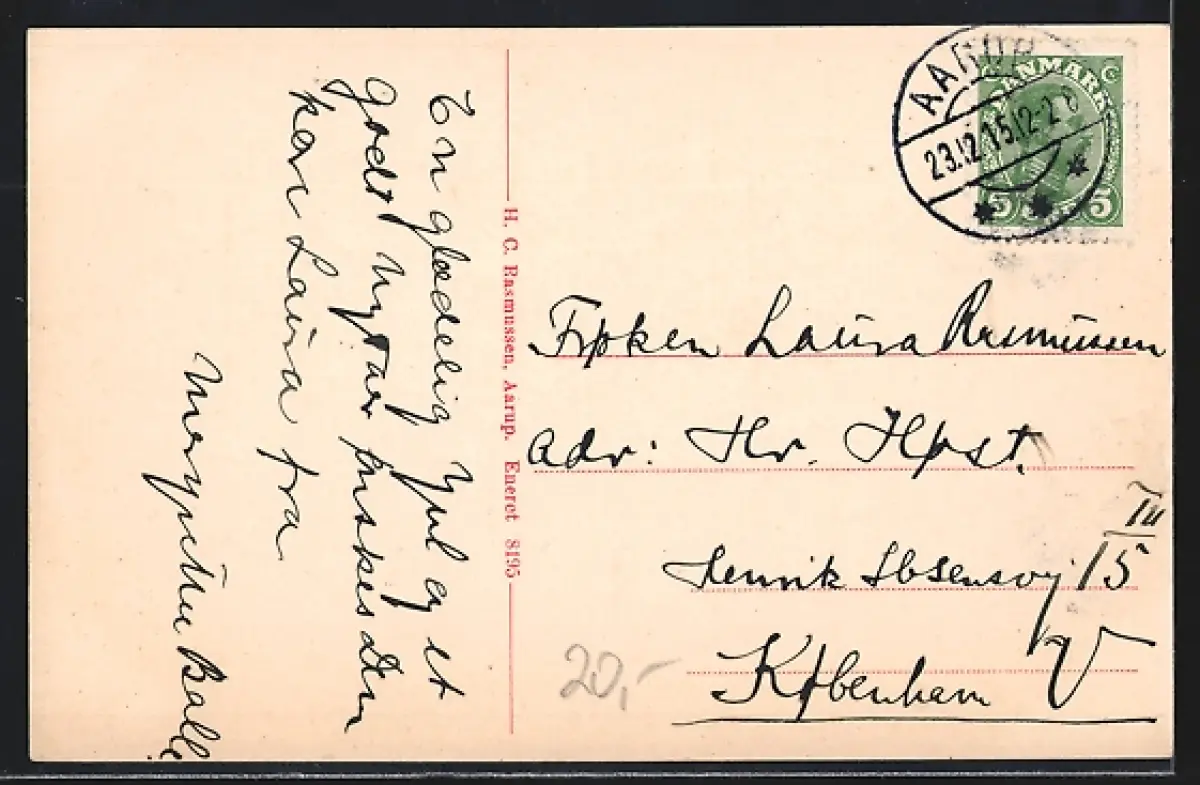 En glædelig Jul og et
godt Nytaar ønskes Den
kære Laura fra
Balle
H. C. Rasmussen, Aarup. Eneret 8195
AARUP
23.12.15.12-2 E
DANMARK
5 5
Frøken Laura Rasmussen
adr: Hr. Høst.
Henrik Ibsensvej 15 III
København V
20,-